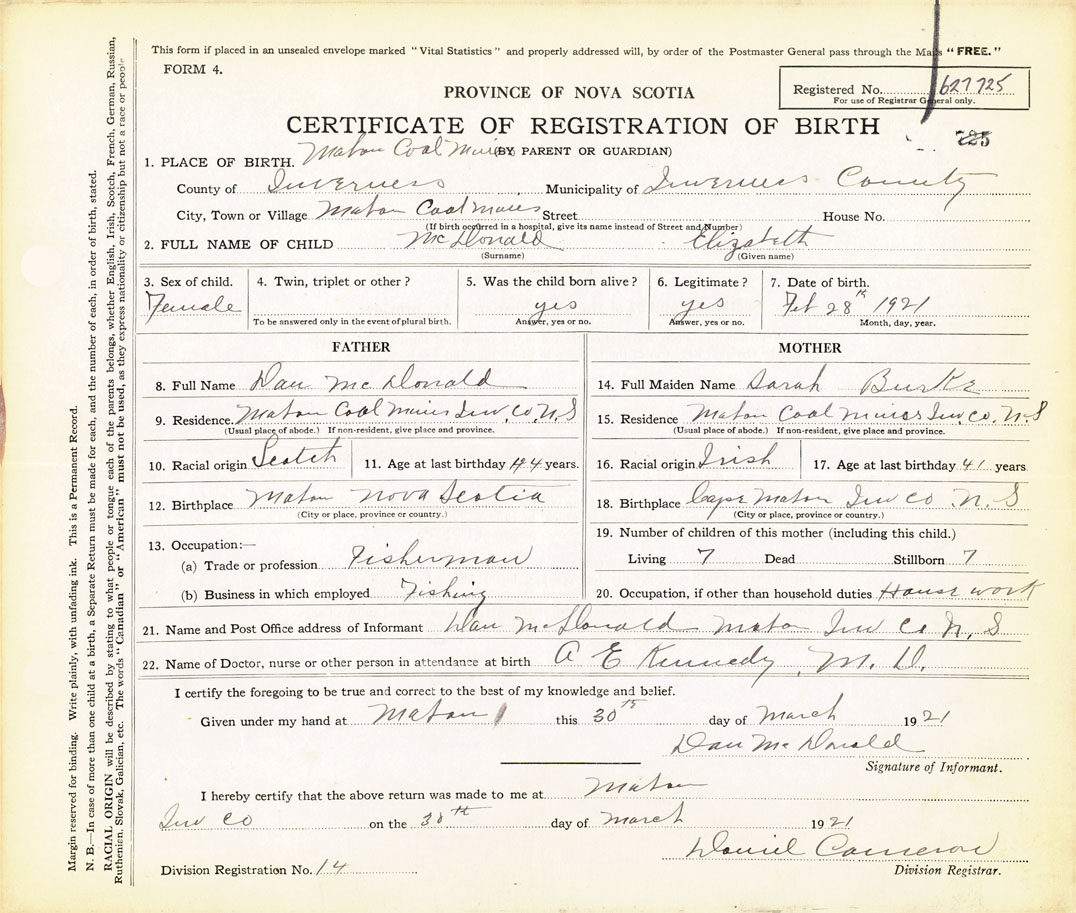 This form if placed in an unsealed envelope marked "Vital Statistics" and properly addressed will, by order of the Postmaster General pass through the Mails "FREE."
FORM 4.
Registered No. 627725
For use of Registrar General only.
PROVINCE OF NOVA SCOTIA
CERTIFICATE OF REGISTRATION OF BIRTH
725
(BY PARENT OR GUARDIAN)
1. PLACE OF BIRTH. Mabou Coal Mines
County of Inverness Municipality of Inverness County
City, Town or Village Mabou Coal Mines Street House No.
(If birth occurred in a hospital, give its name instead of Street and Number)
2. FULL NAME OF CHILD McDonald Elizabeth
(Surname) (Given name)
3. Sex of child. 4. Twin, triplet or other? 5. Was the child born alive? 6. Legitimate? 7. Date of birth.
Female yes yes Feb 28th 1921
To be answered only in the event of plural birth. Answer, yes or no. Answer, yes or no. Month, day, year.
FATHER
8. Full Name Dan McDonald
9. Residence. Mabou Coal Mines Inv. Co. N. S
(Usual place of abode.) If non-resident, give place and province.
10. Racial origin Scotch 11. Age at last birthday 44 years.
12. Birthplace Mabou Nova Scotia
(City or place, province or country.)
13. Occupation:—
(a) Trade or profession Fisherman
(b) Business in which employed Fishing
MOTHER
14. Full Maiden Name Sarah Burke
15. Residence Mabou Coal Mines Inv. co. N. S
(Usual place of abode.) If non-resident, give place and province.
16. Racial origin Irish 17. Age at last birthday 41 years
18. Birthplace Cape Mabou Inv co N. S
(City or place, province or country.)
19. Number of children of this mother (including this child.)
Living 7 Dead Stillborn 7
20. Occupation, if other than household duties House work
21. Name and Post Office address of Informant Dan McDonald Mabou Inv Co N. S
22. Name of Doctor, nurse or other person in attendance at birth A E Kennedy, M. D.
I certify the foregoing to be true and correct to the best of my knowledge and belief.
Given under my hand at Mabou this 30th day of March 1921
Dan McDonald
Signature of Informant.
I hereby certify that the above return was made to me at Mabou
Inv Co on the 30th day of March 1921
Daniel Cameron
Division Registration No. 14 Division Registrar.
Margin reserved for binding. Write plainly, with unfading ink. This is a Permanent Record.
N. B.—In case of more than one child at a birth, a Separate Return must be made for each, and the number of each, in order of birth, stated.
RACIAL ORIGIN will be described by stating to what people or tongue each of the parents belongs, whether English, Irish, Scotch, French, German, Russian,
Ruthenian, Slovak, Galician, etc. The words "Canadian" or "American" must not be used, as they express nationality or citizenship but not a race or people